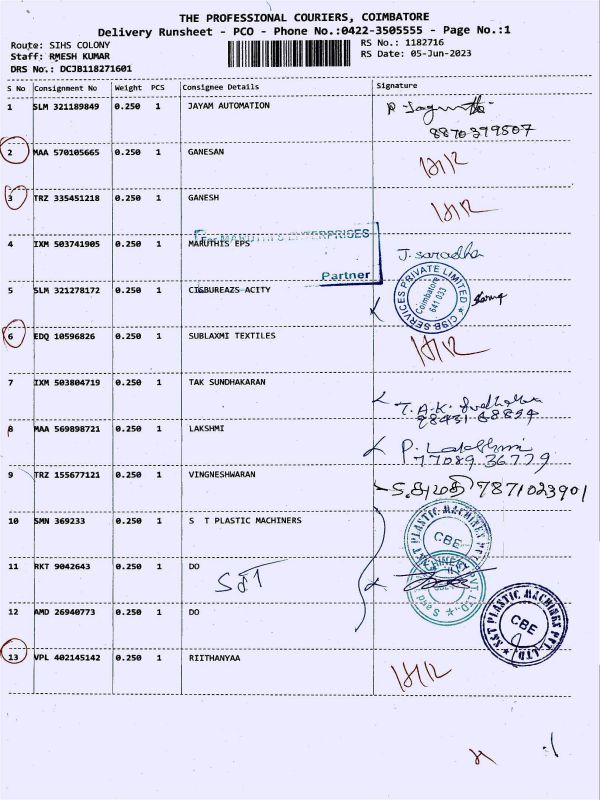 THE PROFESSIONAL COURIERS, COIMBATORE
Delivery Runsheet - PCO - Phone No.:0422-3505555 - Page No.:1
Route: SIHS COLONY RS No.: 1182716
Staff: RMESH KUMAR RS Date: 05-Jun-2023
DRS No.: DCJB118271601
S No Consignment No Weight PCS Consignee Details Signature
1 SLM 321189849 0.250 1 JAYAM AUTOMATION
8870379507
2 MAA 570105665 0.250 1 GANESAN
3 TRZ 335451218 0.250 1 GANESH
MARUTHI'S ENTERPRISES
4 IXM 503741905 0.250 1 MARUTHIS EPS J. Saradha
Partner
5 SLM 321278172 0.250 1 CISBUREAZS ACITY
CISB SERVICES PRIVATE LIMITED
Coimbatore
641 033
6 EDQ 10596826 0.250 1 SUBLAXMI TEXTILES
7 IXM 503804719 0.250 1 TAK SUNDHAKARAN
T.A.K.
8 MAA 569898721 0.250 1 LAKSHMI P. Lakshmi
77089 36779
9 TRZ 155677121 0.250 1 VINGNESHWARAN
ச.சுமதி 7871023901
10 SMN 369233 0.250 1 S T PLASTIC MACHINERS
CBE
11 RKT 9042643 0.250 1 DO
12 AMD 26940773 0.250 1 DO
S&T PLASTIC MACHINES PVT. LTD
CBE
13 VPL 402145142 0.250 1 RIITHANYAA